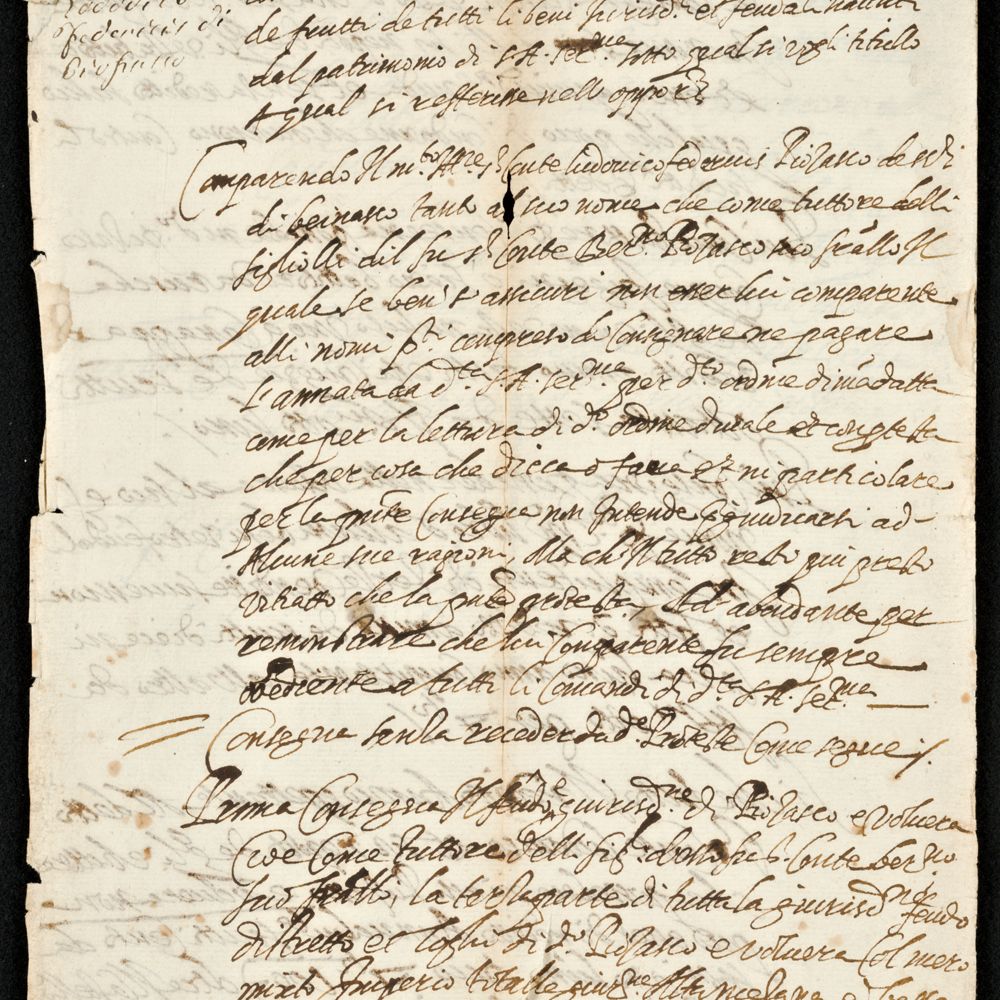 Lodovico
federicis di
Piosasco
de frutti de tutti li beni jurisd.li et feudali
dal patrimonio di S. A. Ser.ma sotto qual si vogli titullo
A qual si refferisse nelle oppor.e
Comparendo Il m.to Ill.re s.r Conte ludovico federicis Piosasco de s.ri
di beinasco tanto al suo nome che come tuttore delli
figliolli dil fu s.r Conte Ber.no Piosasco suo frãllo Il
quale se ben s'assicuri non esser lui comparente
alli nomi p.ti compreso di Consegnare ne pagare
L'annata da d.ta S. A. Ser.ma per d.to ordine
come per la lettura di d.o ordine et
che per cosa che dicca o facia et ni particolare
per la pñte Consegna non Intende pgiudicarsi ad-
Alcune sue ragioni, Ma ch' Il tutto resti
che la pñte protesta abondante per
remonstrare che lui Comparente fu sempre
obediente a tutti li Comandi di d.ta S. A. Ser.ma
Consegna senza receder da d.e Proteste Come segue /.
Prima Consegna Il feudo e giurisd.ne di Piosasco e volvera
Cioe Come tuttore delli fig.li dil fu s.r Conte ber.no
suo frãlli, la terza parte di tutta la giurisd.ne feudo
distretto et loghi di d.o Piosasco e volvera Col mero
mixto Imperio totalle giur.ne Alta mediane e bassa